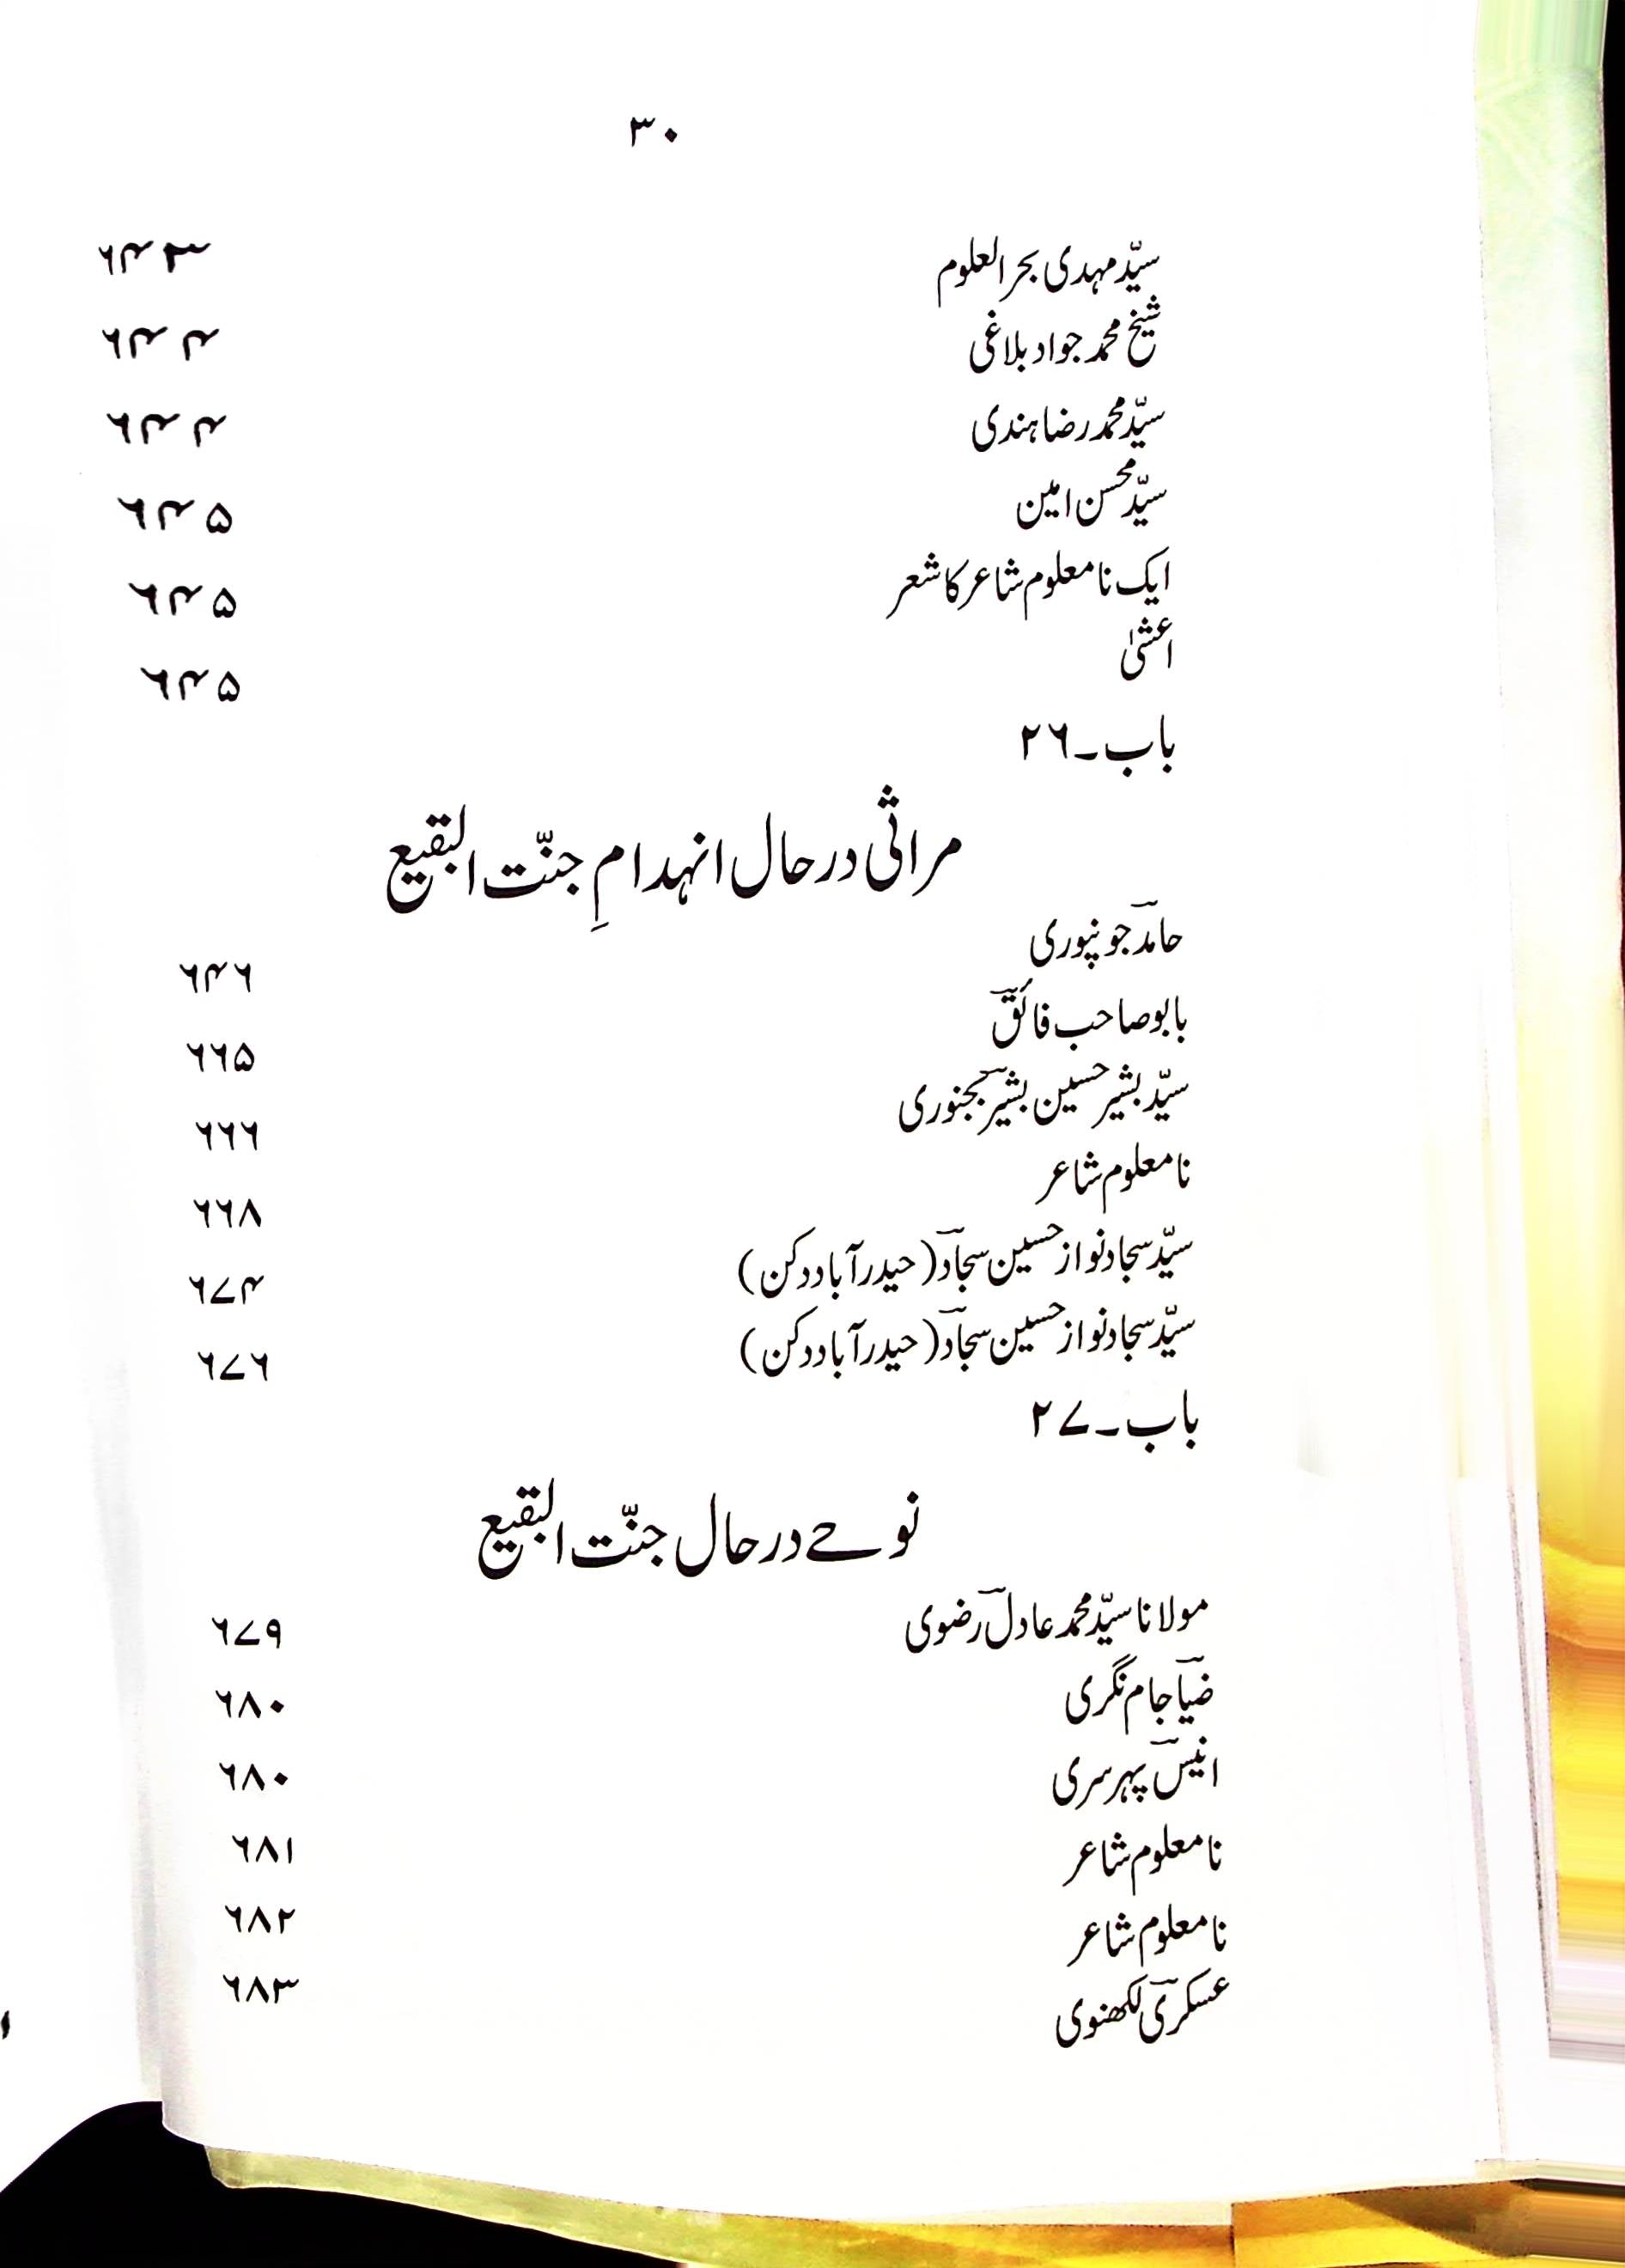 ۳۰
سیّد مہدی بحر العلوم ۶۴۳
شیخ محمد جواد بلاغی ۶۴۴
سیّد محمد رضا ہندی ۶۴۴
سیّد محسن امین ۶۴۵
ایک نامعلوم شاعر کا شعر ۶۴۵
اعشیٰ ۶۴۵
باب۔۲۶
مراثی در حال انہدامِ جنّت البقیع
حامدؔ جونپوری ۶۴۶
بابو صاحب فائقؔ ۶۶۵
سیّد بشیر حسین بشیرؔ بجنوری ۶۶۶
نامعلوم شاعر ۶۶۸
سیّد سجاد نواز حسین سجادؔ (حیدرآباد دکن) ۶۷۴
سیّد سجاد نواز حسین سجادؔ (حیدرآباد دکن) ۶۷۶
باب۔۲۷
نوحے در حال جنّت البقیع
مولانا سیّد محمد عادلؔ رضوی ۶۷۹
ضیاؔ جام نگری ۶۸۰
انیسؔ پہرسری ۶۸۰
نامعلوم شاعر ۶۸۱
نامعلوم شاعر ۶۸۲
عسکریؔ لکھنوی ۶۸۳